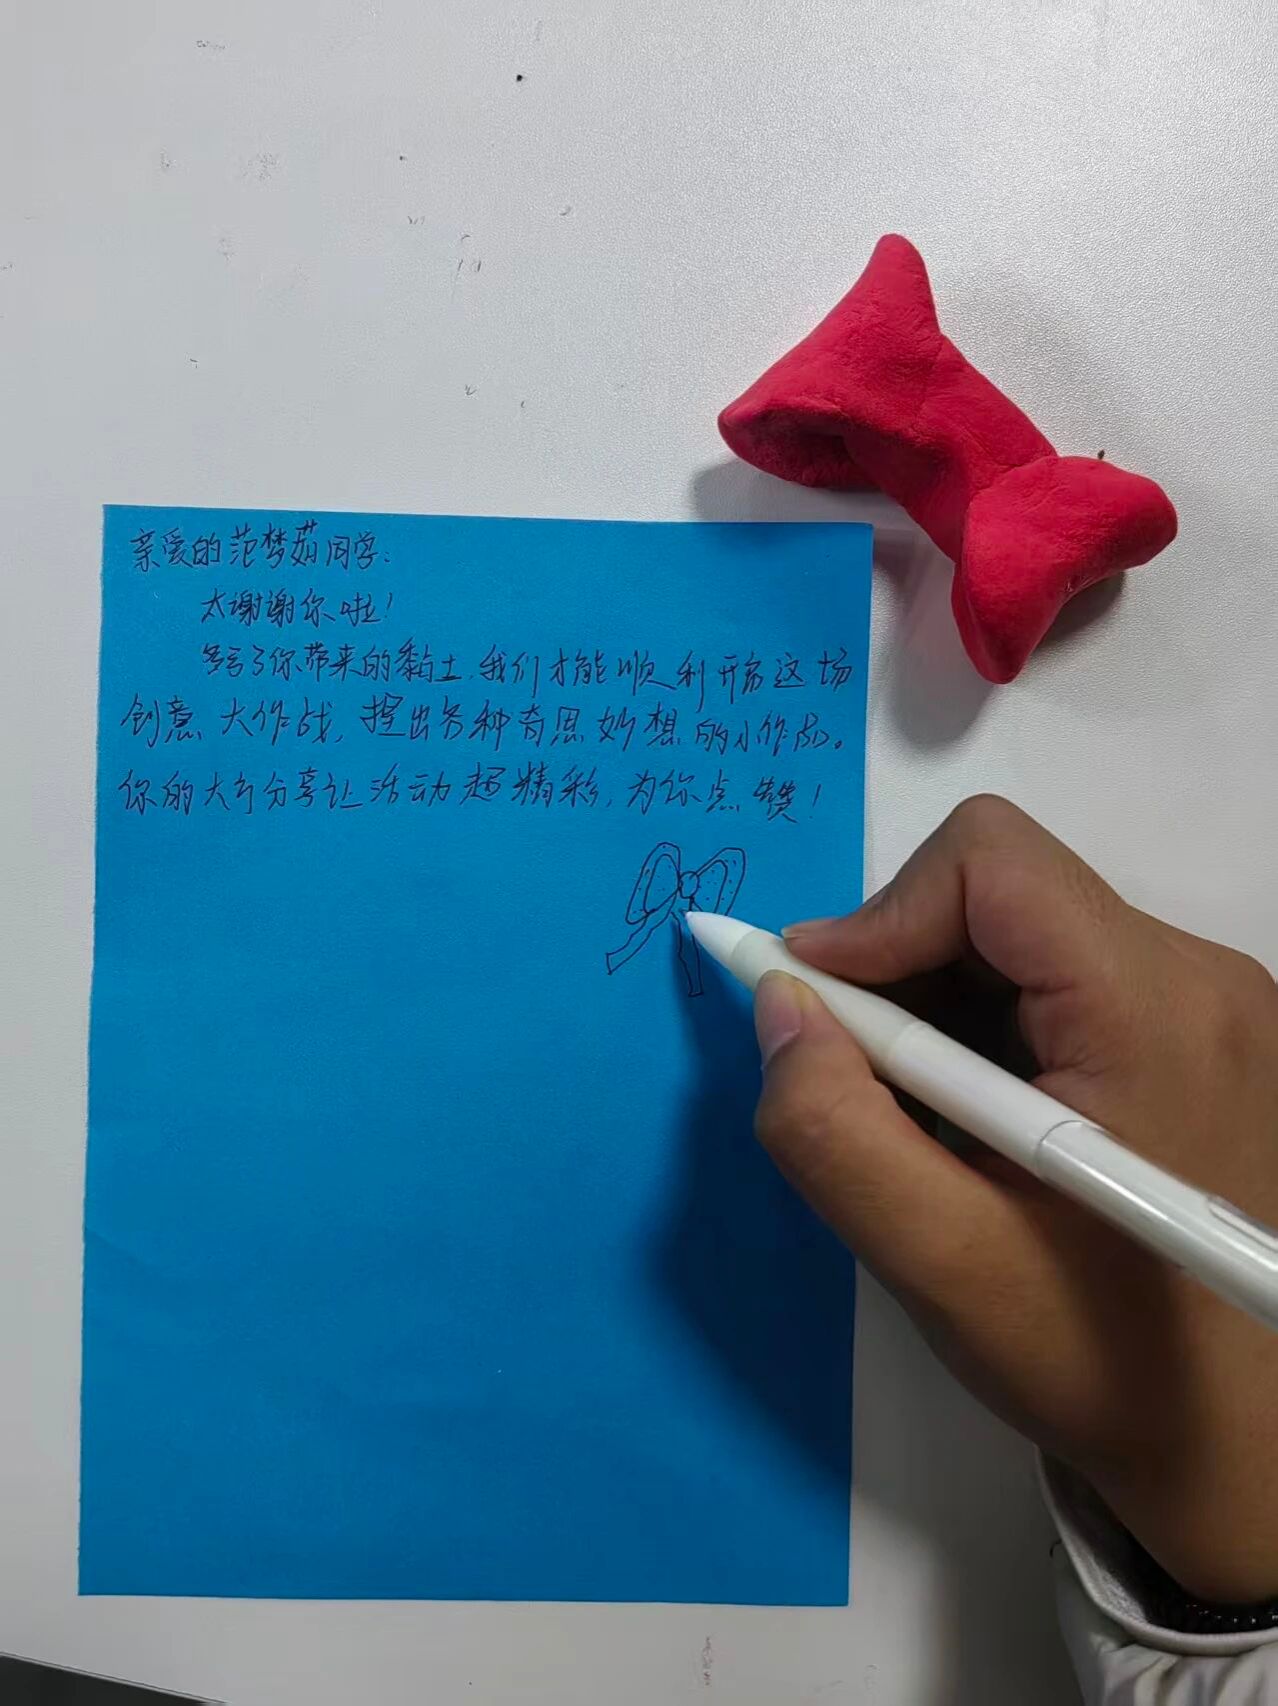 亲爱的范梦茹同学:
太谢谢你啦!
多亏了你带来的黏土,我们才能顺利开启这场
创意大作战,捏出各种奇思妙想的小作品。
你的大方分享让活动超精彩,为你点赞!